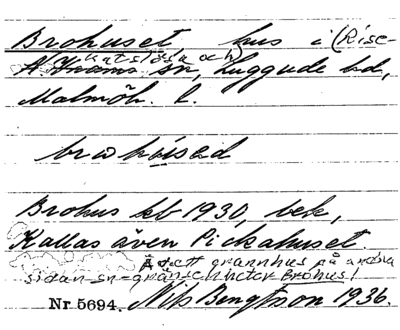 Brohuset hus i (Rise-
katslösa och)
Kvarns sn, Luggude hd,
Malmöh. l.
brohúsəd
Brohus kb 1930, bek,
Kallas även Pickahuset.
Ä det grannhus på andra
sidan sn-gränsen heter Brohus!
Nr. 5694. Nils Bengtson 1936.